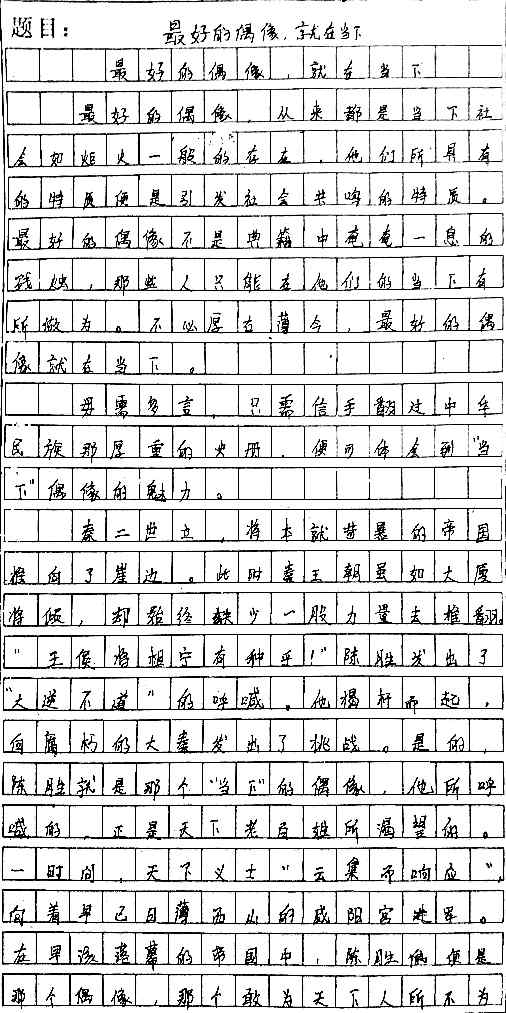 题目： 最好的偶像，就在当下
最好的偶像，就在当下
最好的偶像，从来都是当下社
会如炬火一般的存在，他们所具有
的特质便是引发社会共鸣的特质。
最好的偶像不是典籍中奄奄一息的
残烛，那些人只能在他们的当下有
所做为。不必厚古薄今，最好的偶
像就在当下。
毋需多言，只需信手翻过中华
民族那厚重的史册，便可体会到“当
下”偶像的魅力。
秦二世立，将本就苛暴的帝国
推向了崖边。此时秦王朝虽如大厦
将倾，却始终缺少一股力量去推翻。
“王侯将相宁有种乎！”陈胜发出了
“大逆不道”的呼喊。他揭杆而起，
向腐朽的大秦发出了挑战。是的，
陈胜就是那个“当下”的偶像，他所呼
喊的，正是天下老百姓所渴望的。
一时间，天下义士“云集而响应”，
向着早已日薄西山的咸阳宫进军。
在早该落幕的帝国中，陈胜便是
那个偶像，那个敢为天下人所不为